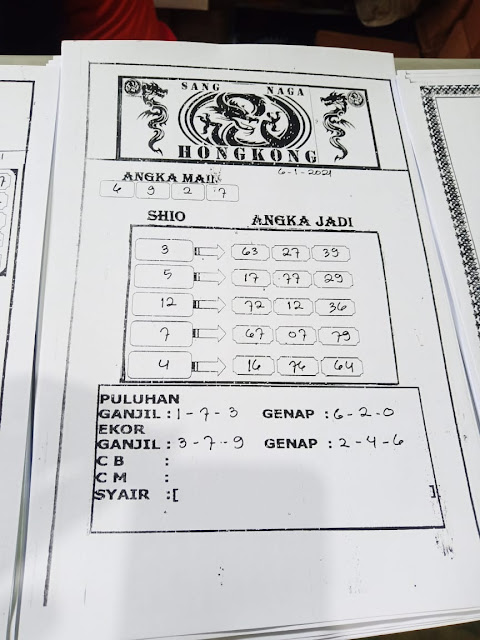 SANG NAGA
HONGKONG
6-1-2021
ANGKA MAIN
6 9 2 7
SHIO ANGKA JADI
3 63 27 39
5 17 77 29
12 72 12 36
7 67 07 79
4 16 76 64
PULUHAN
GANJIL : 1-7-3 GENAP : 6-2-0
EKOR
GANJIL : 3-7-9 GENAP : 2-4-6
C B :
C M :
SYAIR :[ ]